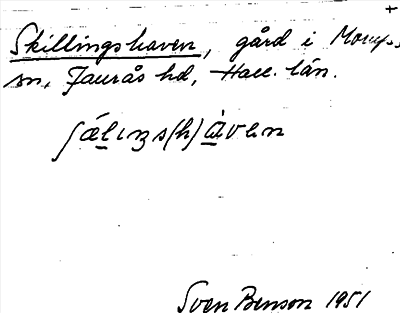 Skillingshaven, gård i
sn, Faurås hd, Hall. län.
ʃǽlıŋs(h)àven
Sven Benson 1951